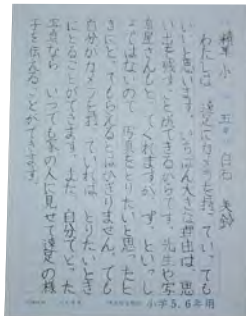 精華小 五年 白石 美鈴
わたしは、遠足にカメラを持っていっても
いいと思います。いちばん大きな理由は、思
い出を残すことができるからです。先生や写
真屋さんもとってくれますが、ずっといっし
ょではないので、写真をとりたいと思ったと
きにとってもらえるとはかぎりません。でも
自分がカメラを持っていれば、とりたいとき
にとることができます。また、自分でとった
写真なら、いつでも家の人に見せて遠足の様
子を伝えることができます。
小学5.6年用